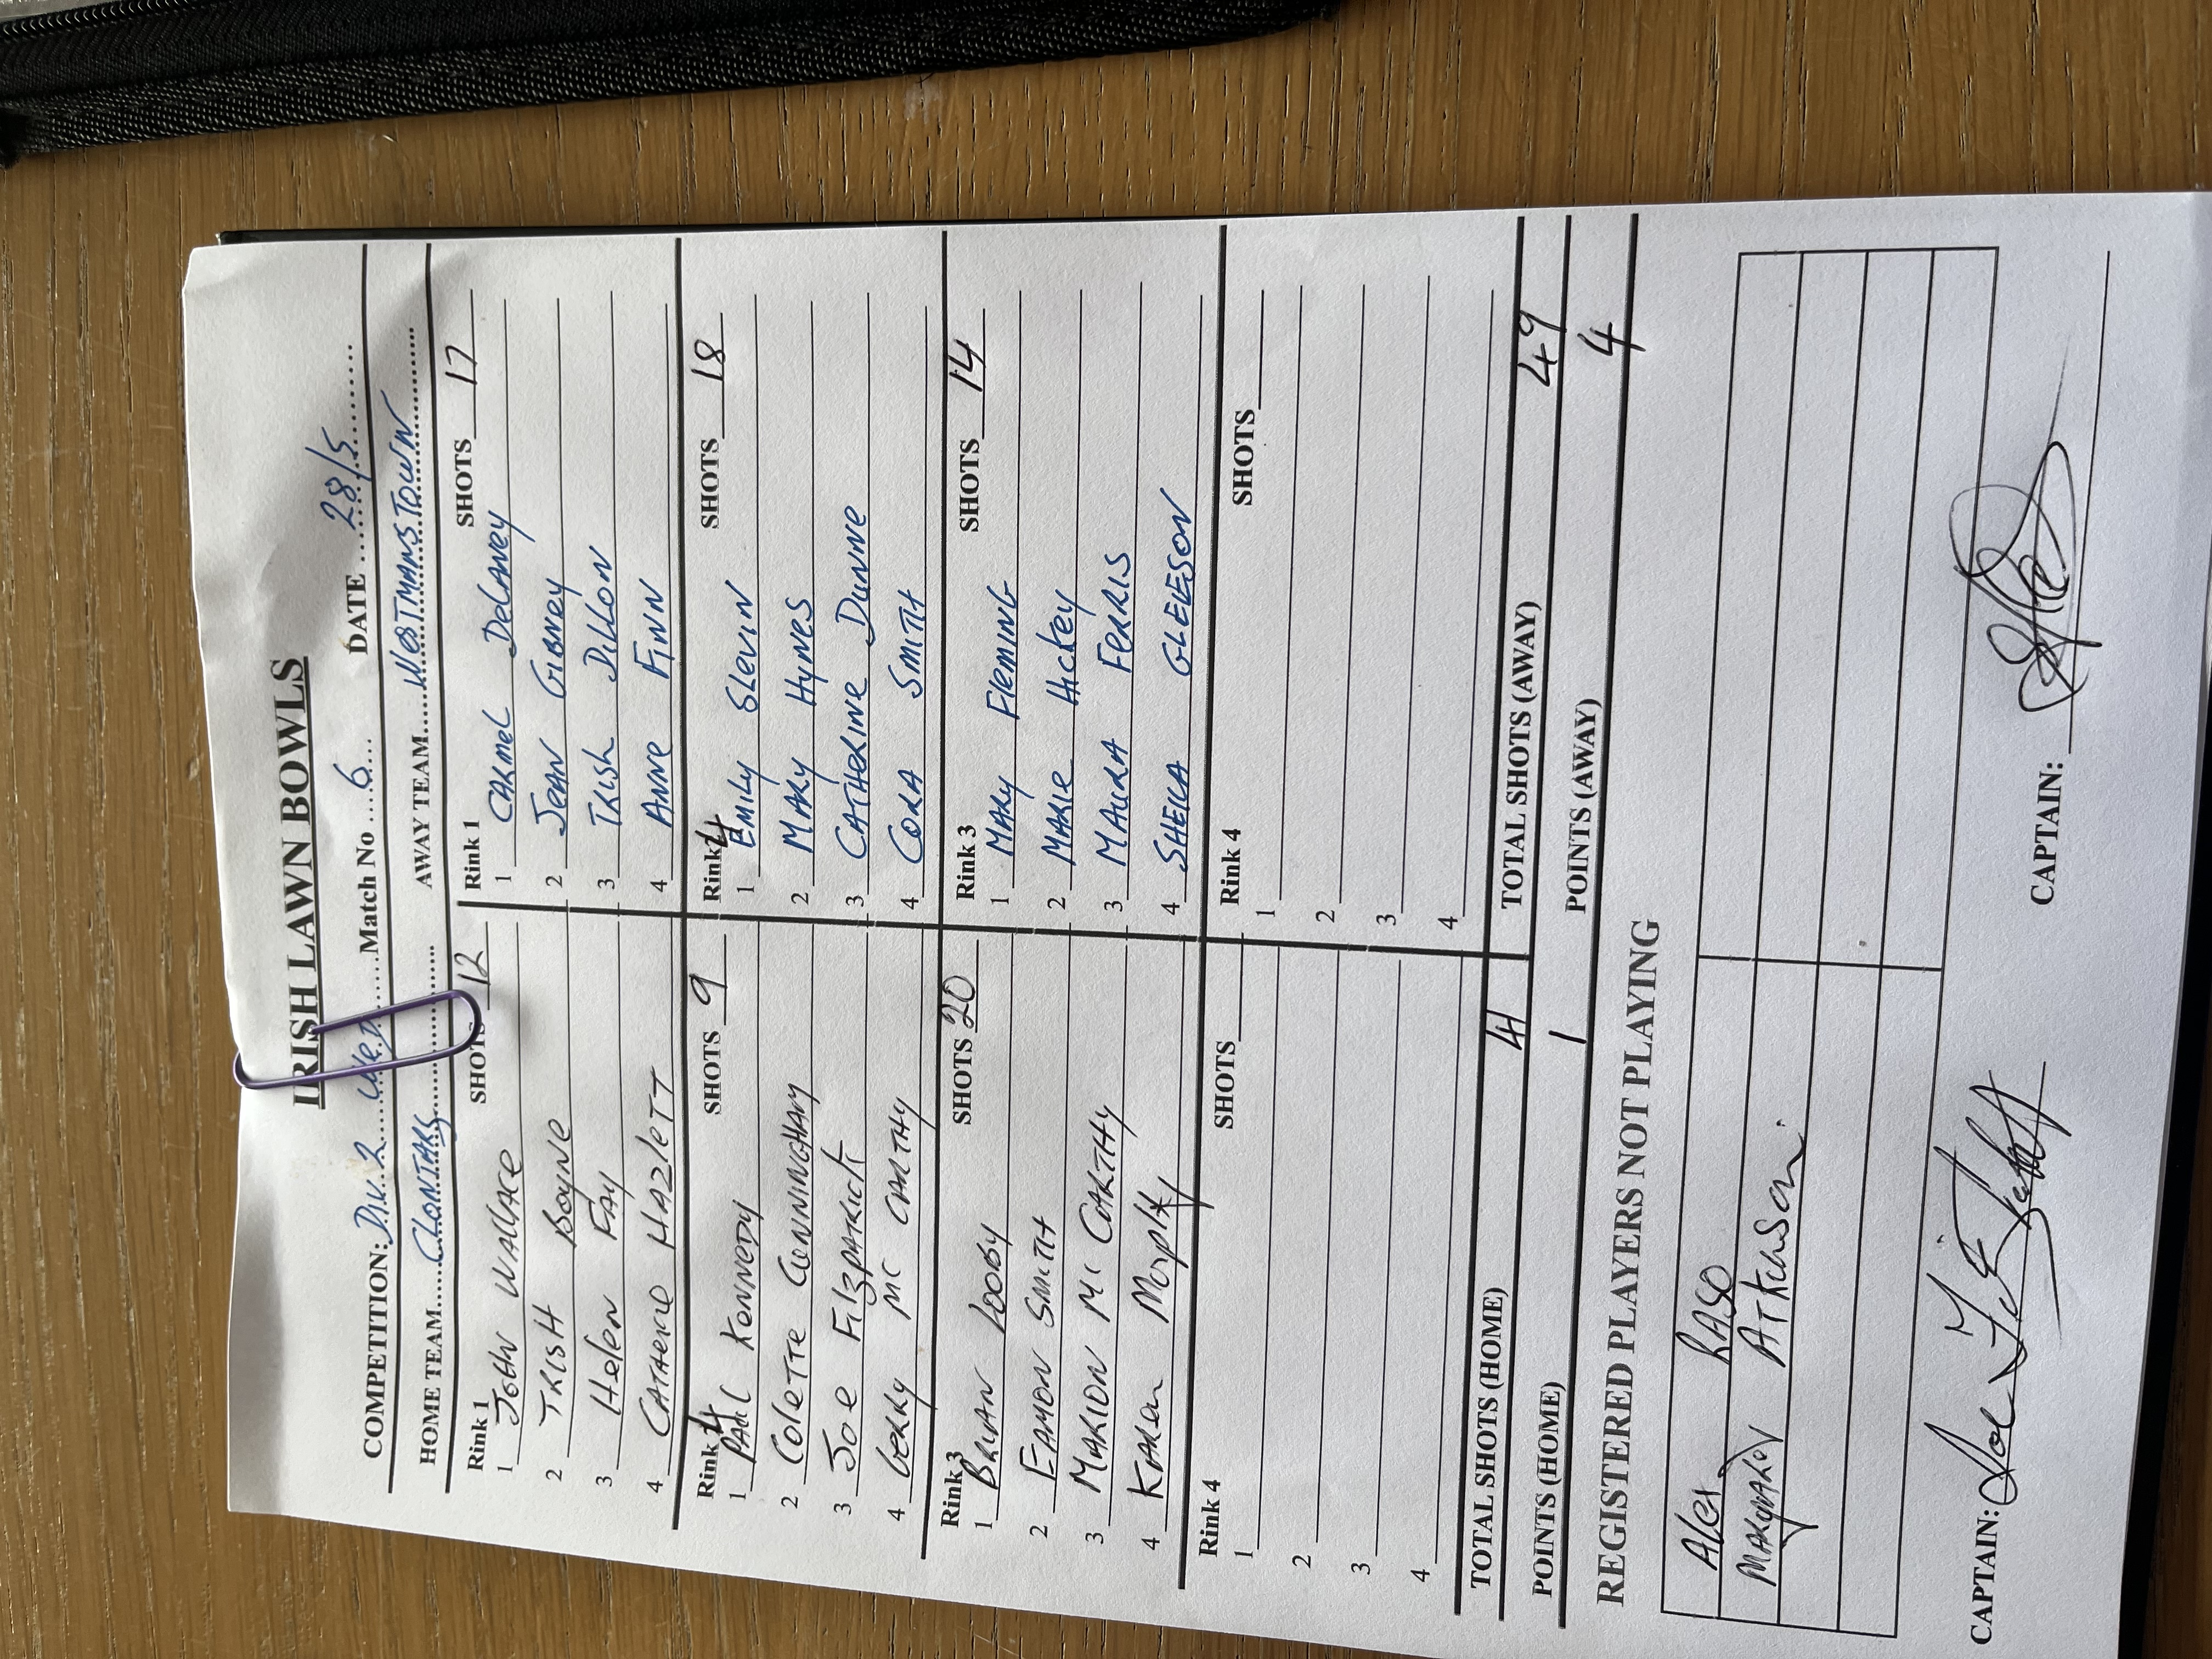 IRISH LAWN BOWLS
COMPETITION: Div. 2 Wed. Match No ...6... DATE ...28/5...
HOME TEAM....CLONTARF.... AWAY TEAM....WESTMANSTOWN....
Rink 1 SHOTS 12 Rink 1 SHOTS 17
1 JOHN WALLACE 1 CARMEL DELANEY
2 TRISH BOYNE 2 JEAN GIBNEY
3 Helen FAY 3 TRISH DILLON
4 CATHERINE HAZLETT 4 ANNE FINN
Rink 4 SHOTS 9 Rink 4 SHOTS 18
1 PAUL KENNEDY 1 EMILY SLEVIN
2 COLETTE CUNNINGHAM 2 MARY HYNES
3 JOE FITZPATRICK 3 CATHERINE DUNNE
4 GERRY MC CARTHY 4 CORA SMITH
Rink 3 SHOTS 20 Rink 3 SHOTS 14
1 BRIAN LOOBY 1 MARY FLEMING
2 EAMON SMITH 2 MARIE HICKEY
3 MARION MC CARTHY 3 MAURA FERRIS
4 KAREN Morphy 4 SHEILA GLEESON
Rink 4 SHOTS Rink 4 SHOTS
1 1
2 2
3 3
4 4
TOTAL SHOTS (HOME) 41 TOTAL SHOTS (AWAY) 49
POINTS (HOME) 1 POINTS (AWAY) 4
REGISTERED PLAYERS NOT PLAYING
Alex RASO
Atkinson
CAPTAIN: Joe CAPTAIN: